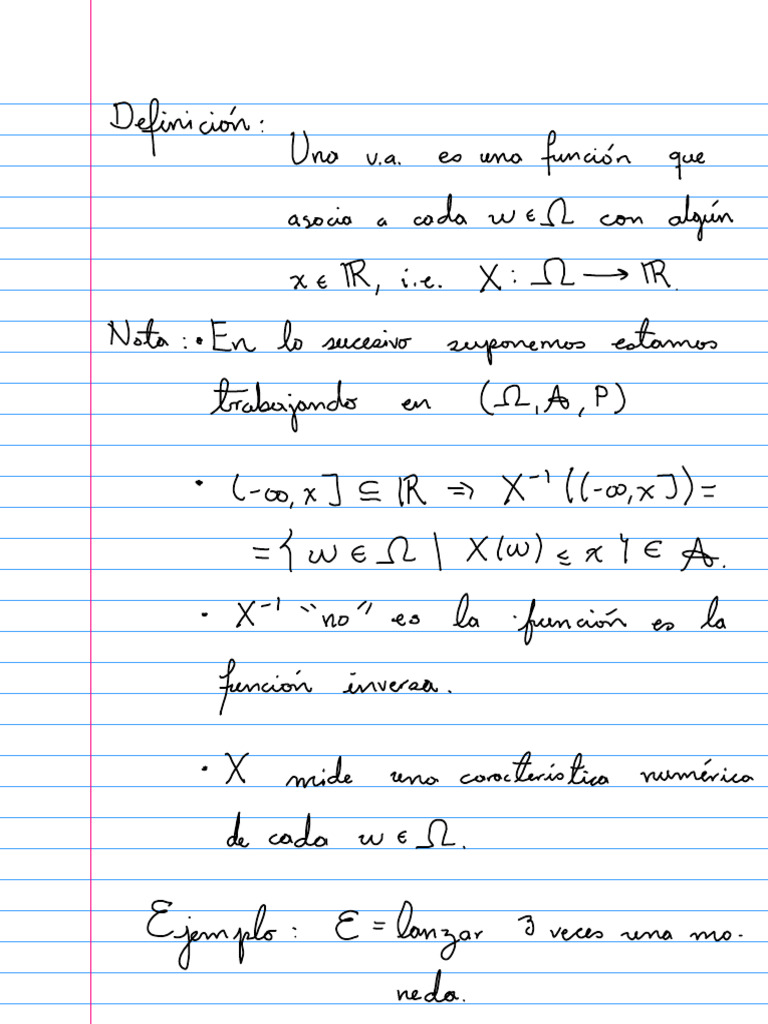 Definición:
Una v.a. es una función que
asocia a cada w ∈ Ω con algún
x ∈ ℝ, i.e. X : Ω → ℝ.
Nota: • En lo sucesivo suponemos estamos
trabajando en (Ω, 𝔸, P)
• (-∞, x] ⊆ ℝ ⇒ X⁻¹((-∞, x]) =
= { w ∈ Ω | X(w) ≤ x } ∈ 𝔸.
• X⁻¹ "no" es la función es la
función inversa.
• X mide una característica numérica
de cada w ∈ Ω.
Ejemplo: Ɛ = lanzar 3 veces una mo-
neda.